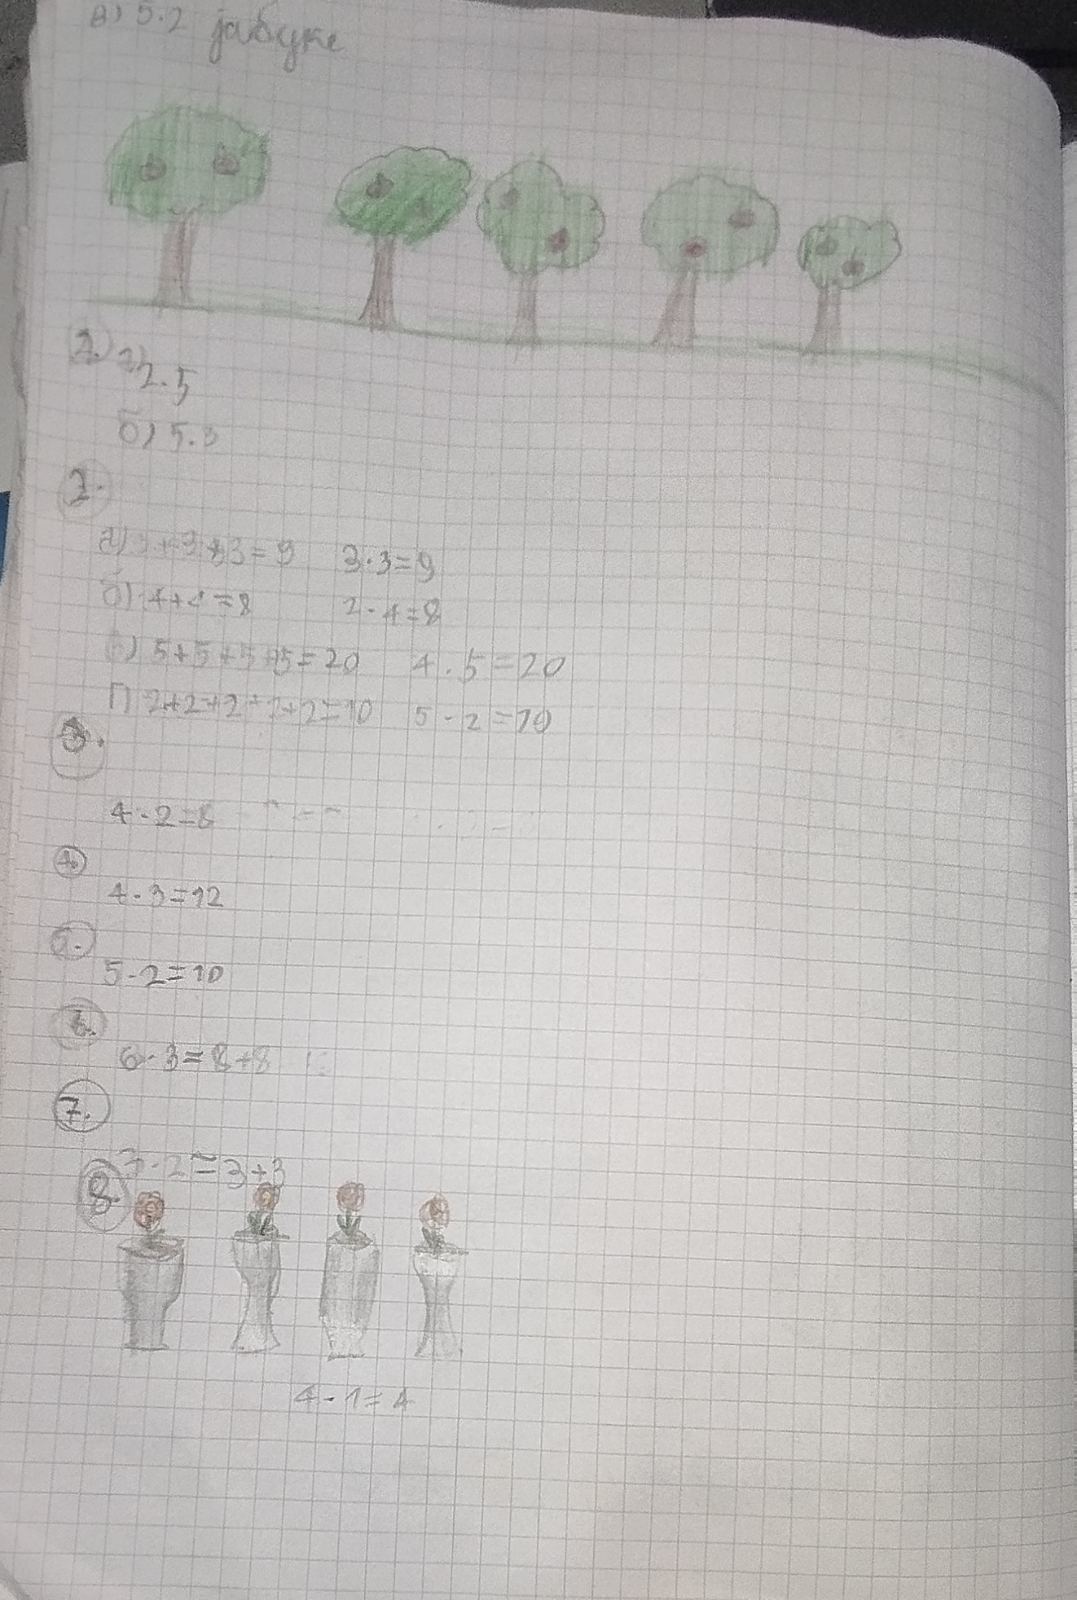 в) 5.2 јабуке
2. а) 2.5
б) 5.3
2.
а) 3+3+3=9 3·3=9
б) 4+4=8 2·4=8
в) 5+5+5+5=20 4·5=20
г) 2+2+2+2+2=10 5·2=10
3.
4·2=8
4.
4·3=12
5.
5·2=10
6.
6·3=8+8
7.
3·2=3+3
8
4·1=4